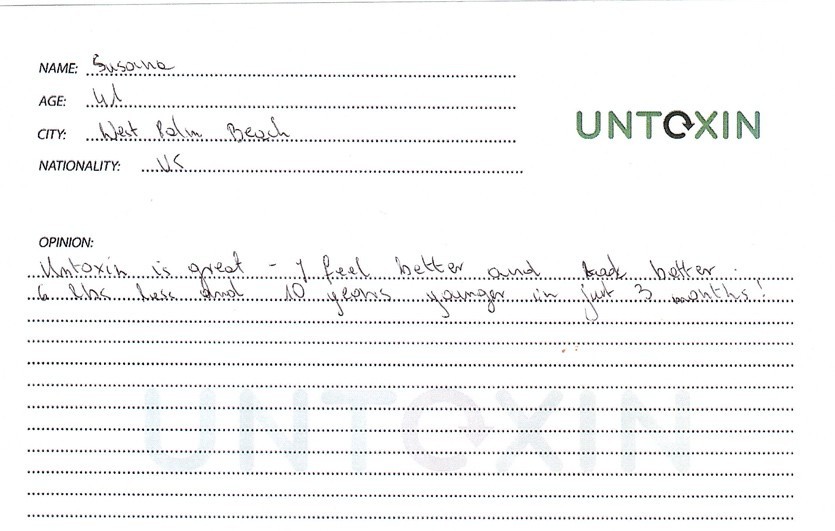 NAME: Susana
AGE: 41
CITY: West Palm Beach
UNTOXIN
NATIONALITY: US
OPINION:
Untoxin is great - I feel better and look better.
6 lbs less and 10 years younger in just 3 months!
UNTOXIN